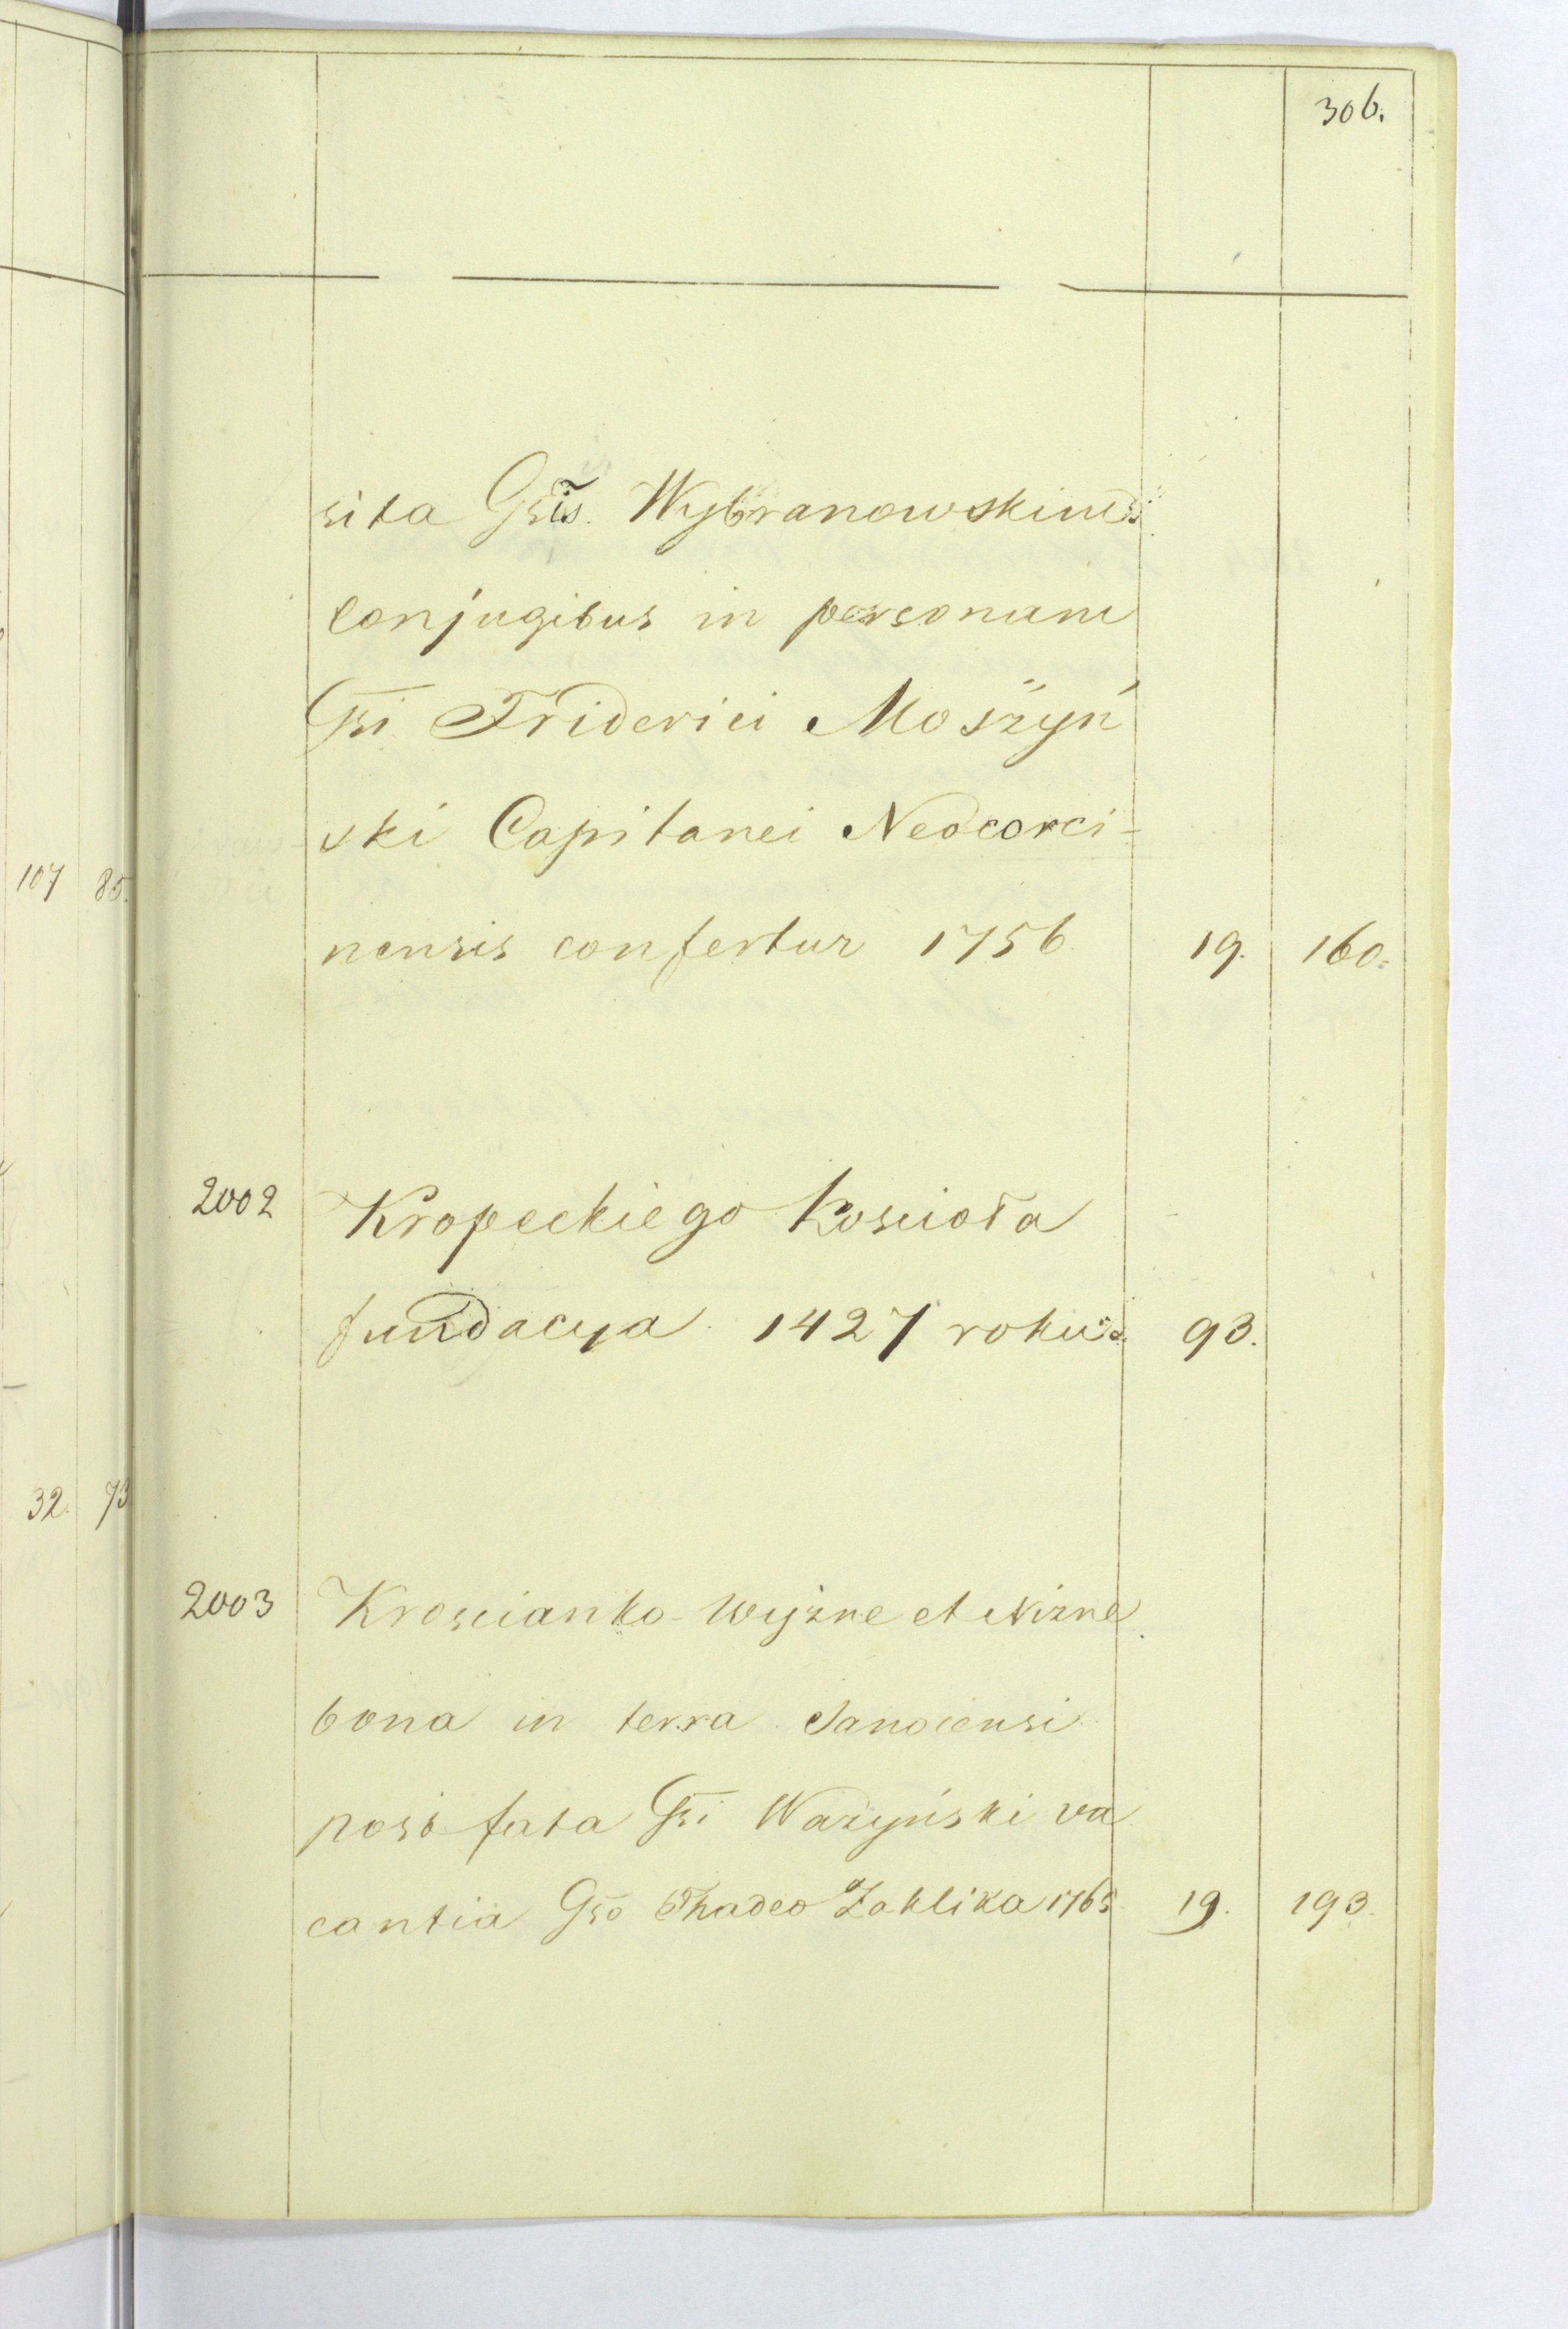 306.
sita Gsis. Wybranowskim
Conjugibus in personam
Gsi Friderici Moszyń
ski Capitanei Neocorci-
nensis confertur 1756 19. 160.
107 85.
2002 Kropeckiego koscioła
fundacya 1427 roku 93.
32. 73
2003 Kroscianko-Wyżne et Niżne
bona in terra Sanocensi
post fata Gsi Ważyński va
cantia Gso Thadeo Zaklika 1765 19. 193.